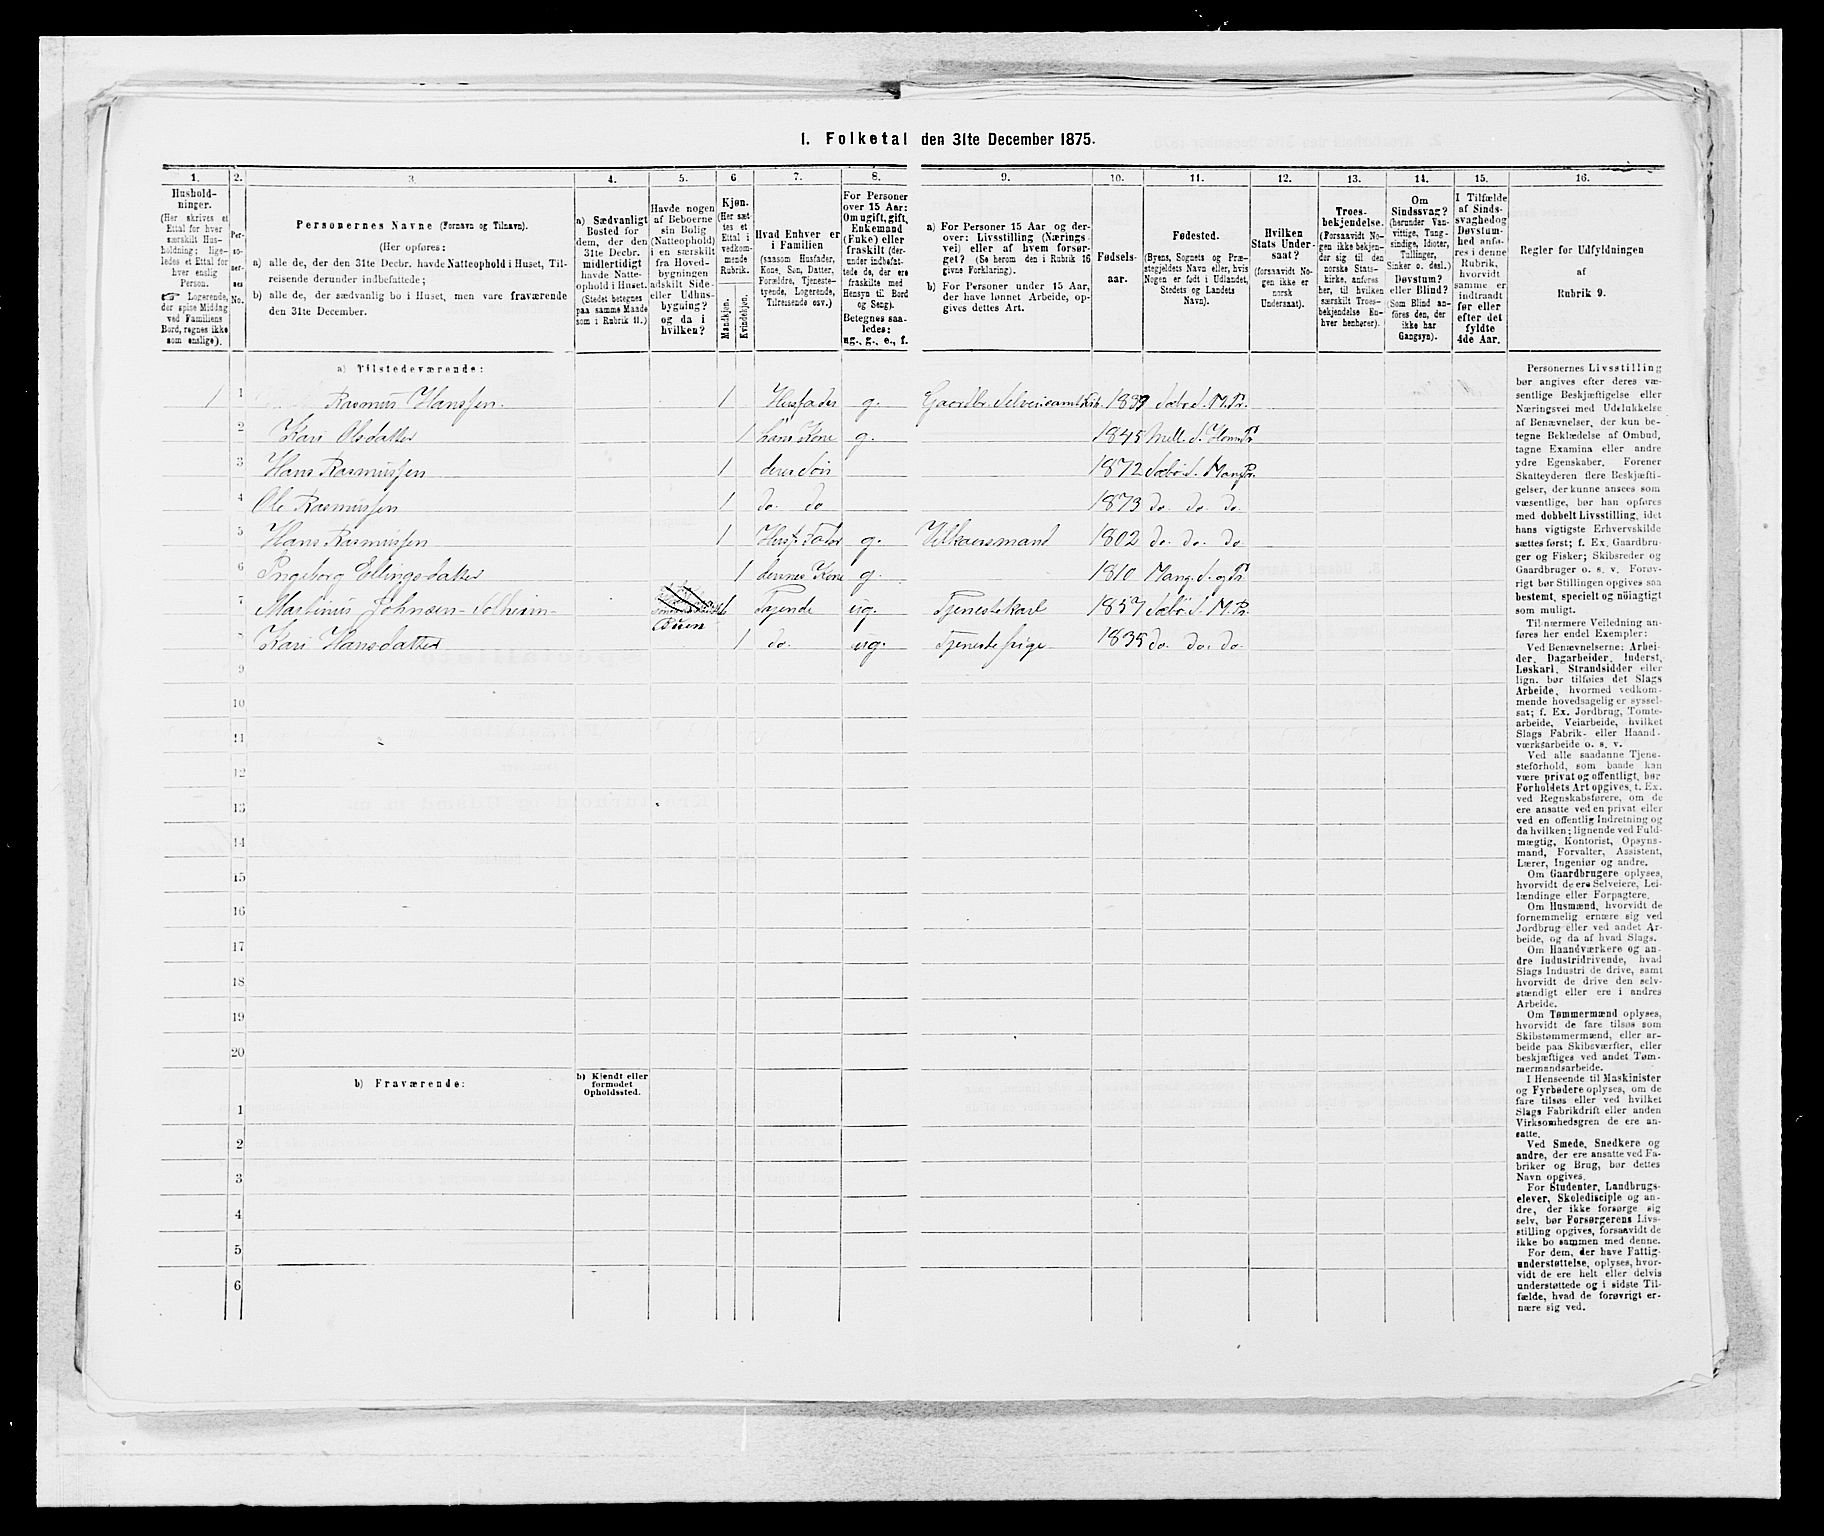 1. Folketal den 31te December 1875.
1. 2. 3. 4. 5. 6. 7. 8. 9. 10. 11. 12. 13. 14. 15. 16.
Hushold-
ninger.
(Her skrives et
Ettal for hver
særskilt Hus-
holdning; lige-
ledes et Ettal for
hver enslig
Person.
☞ Logerende,
der spise Middag
ved Familiens
Bord, regnes ikke
som enslige).
Per-
so-
ner-
nes
No.
Personernes Navne (Fornavn og Tilnavn).
(Her opføres:
a) alle de, der den 31te Decbr. havde Natteophold i Huset, Til-
reisende derunder indbefattede;
b) alle de, der sædvanlig bo i Huset, men vare fraværende
den 31te December.
a) Sædvanligt
Bosted for
dem, der den
31te Decbr.
midlertidigt
havde Natte-
ophold i Huset.
(Stedet betegnes
paa samme Maade
som i Rubrik 11.)
Havde nogen
af Beboerne
sin Bolig
(Natteophold)
i en særskilt
fra Hoved-
bygningen
adskilt Side-
eller Udhus-
bygning?
og da i
hvilken?
Kjøn.
(Her sæt-
tes et
Ettal i
vedkom-
mende
Rubrik.
Mandkjøn.
Kvindekjøn.
Hvad Enhver er
i Familien
(saasom Husfader,
Kone, Søn, Datter,
Forældre, Tjeneste-
tyende, Logerende,
Tilreisende osv.)
For Personer
over 15 Aar:
Om ugift, gift,
Enkemand
(Enke) eller
fraskilt (der-
under indbefat-
tede de, der ere
fraskilte med
Hensyn til Bord
og Seng).
Betegnes saa-
ledes:
ug., g., e., f.
a) For Personer 15 Aar og der-
over: Livsstilling (Nærings-
vei) eller af hvem forsør-
get? (Se herom den i Rubrik 16
givne Forklaring).
b) For Personer under 15 Aar,
der have lønnet Arbeide, op-
gives dettes Art.
Fødsels-
aar.
Fødested.
(Byens, Sognets og Præ-
stegjeldets Navn eller, hvis
Nogen er født i Udlandet,
Stedets og Landets
Navn).
Hvilken
Stats Under-
saat?
(forsaavidt No-
gen ikke er
norsk
Undersaat).
Troes-
bekjendelse.
(Forsaavidt No-
gen ikke bekjen-
der sig til den
norske Stats-
kirke, anføres
her, til hvilken
særskilt Troes-
bekjendelse En-
hver henhører).
Om
Sindssvag?
(herunder Van-
vittige, Tung-
sindige, Idioter,
Tullinger,
Sinker o. desl.)
Døvstum?
eller Blind?
(Som Blind an-
føres den, der
ikke har
Gangsyn).
I Tilfælde
af Sinds-
svaghed og
Døvstum-
hed anfø-
res i denne
Rubrik,
hvorvidt
samme er
indtraadt
før eller
efter det
fyldte
4de Aar.
Regler for Udfyldningen
af
Rubrik 9.
a) Tilstedeværende:
1 1 Rasmus Hanssen. 1 Husfader g. Gaardbr. Selveier 183 Sæbø S. M. Pr.
2 Kari Olsdatter 1 hans Kone g. 1845 Mell. S. Hom Pr
3 Hans Rasmussen 1 deres Søn 1872 Sæbø S. Mang Pr.
4 Ole Rasmussen 1 do. do 1873 do. do. do.
5 Hans Rasmussen 1 Husf. Fader g. Vilkaarsmand 1802 do. do. do
6 Ingeborg Ellingsdatter 1 dennes Kone g. 1810 Mang. S. og Pr
7 Martinus Johnsen Solheim 1 Tjende ug. Tjenestekarl 1857 Sæbø S. M. Pr.
8 Kari Hansdatter 1 do. ug. Tjenestepige 1835 do. do. do.
9
10
11
12
13
14
15
16
17
18
19
20
b) Fraværende:
b) Kjendt eller
formodet
Opholdssted.
1
2
3
4
5
6
Personernes Livsstilling
bør angives efter deres væ-
sentlige Beskjæftigelse eller
Næringsvei med Udelukkelse
af Benævnelser, der kun be-
tegne Beklædelse af Ombud,
tagne Examina eller andre
ydre Egenskaber. Forener
Skatteyderen flere Beskjæfti-
gelser, der kunne ansees som
væsentlige, bør han opføres
med dobbelt Livsstilling, idet
hans vigtigste Erhvervskilde
sættes først; f. Ex. Gaardbru-
ger og Fisker; Skibsreder og
Gaardbruger o. s. v. Forøv-
rigt bør Stillingen opgives saa
bestemt, specielt og nøiagtigt
som muligt.
Til nærmere Veiledning an-
føres her endel Exempler:
Ved Benævnelserne: Arbei-
der, Dagarbeider, Inderst,
Løskarl, Strandsidder eller
lign. bør tilføies det Slags
Arbeide, hvormed vedkom-
mende hovedsagelig er syssel-
sat; f. Ex. Jordbrug, Tomte-
arbeide, Veiarbeide, hvilket
Slags Fabrik- eller Haand-
værksarbeide o. s. v.
Ved alle saadanne Tjene-
steforhold, som baade kan
være privat og offentligt, bør
Forholdets Art opgives, t. Ex.
ved Regnskabsførere, om de
ere ansatte ved en privat eller
ved en offentlig Indretning og
da hvilken; lignende ved Fuld-
mægtig, Kontorist, Opsyns-
mand, Forvalter, Assistent,
Lærer, Ingeniør og andre.
Om Gaardbrugere oplyses,
hvorvidt de ere Selveiere, Lei-
lændinge eller Forpagtere.
Om Husmænd, hvorvidt de
fornemmelig ernære sig ved
Jordbrug eller ved andet Ar-
beide, og da af hvad Slags.
Om Haandværkere og an-
dre Industridrivende, hvad
Slags Industri de drive, samt
hvorvidt de drive den selv-
stændigt eller ere i andres
Arbeide.
Om Tømmermænd oplyses,
hvorvidt de fare tilsøs som
Skibstømmermænd, eller ar-
beide paa Skibsværfter, eller
beskjæftiges ved andet Tøm-
mermandsarbeide.
I Henseende til Maskinister
og Fyrbødere oplyses, om de
fare tilsøs eller ved hvilket
Slags Fabrikdrift eller anden
Virksomhedsgren de ere an-
satte.
Ved Smede, Snedkere og
andre, der ere ansatte ved Fa-
briker og Brug, bør dettes
Navn opgives.
For Studenter, Landbrugs-
elever, Skoledisciple og an-
dre, der ikke forsørge sig
selv, bør Forsørgerens Livs-
stilling opgives, forsaavidt de
ikke bo sammen med denne.
For dem, der have Fattig-
understøttelse, oplyses, hvor-
vidt de ere helt eller delvis
understøttede og i sidste Til-
fælde, hvad de forøvrigt er-
nære sig ved.